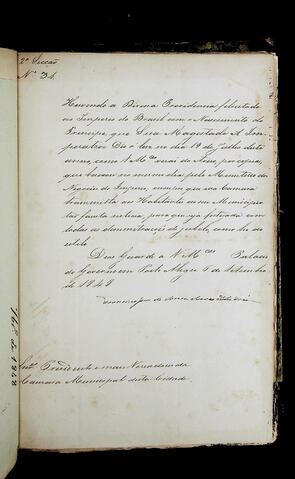 2ª Secção
Nº 34
Havendo a Divina Providencia felicitado
ao Imperio do Brasil com o Nascimento do
Principe, que Sua Magestade A Im-
peratriz Deo á luz no dia 19 de Julho deste
anno, como V Mces verão do
que baixou no mesmo dia pelo Ministerio dos
Negocios do Imperio, cumpre que essa Camara
transmitta aos Habitantes do seu Municipio
tão fausta noticia, para que seja festejada com
todas as demonstrações de jubilo, como he de
estilo
Deos Guarde a V Mces Palacio
do Governo em Porto Alegre 6 de Setembro
de 1848
Snres Presidente e mais Vereadores da
Camara Municipal desta Cidade.
de 1848